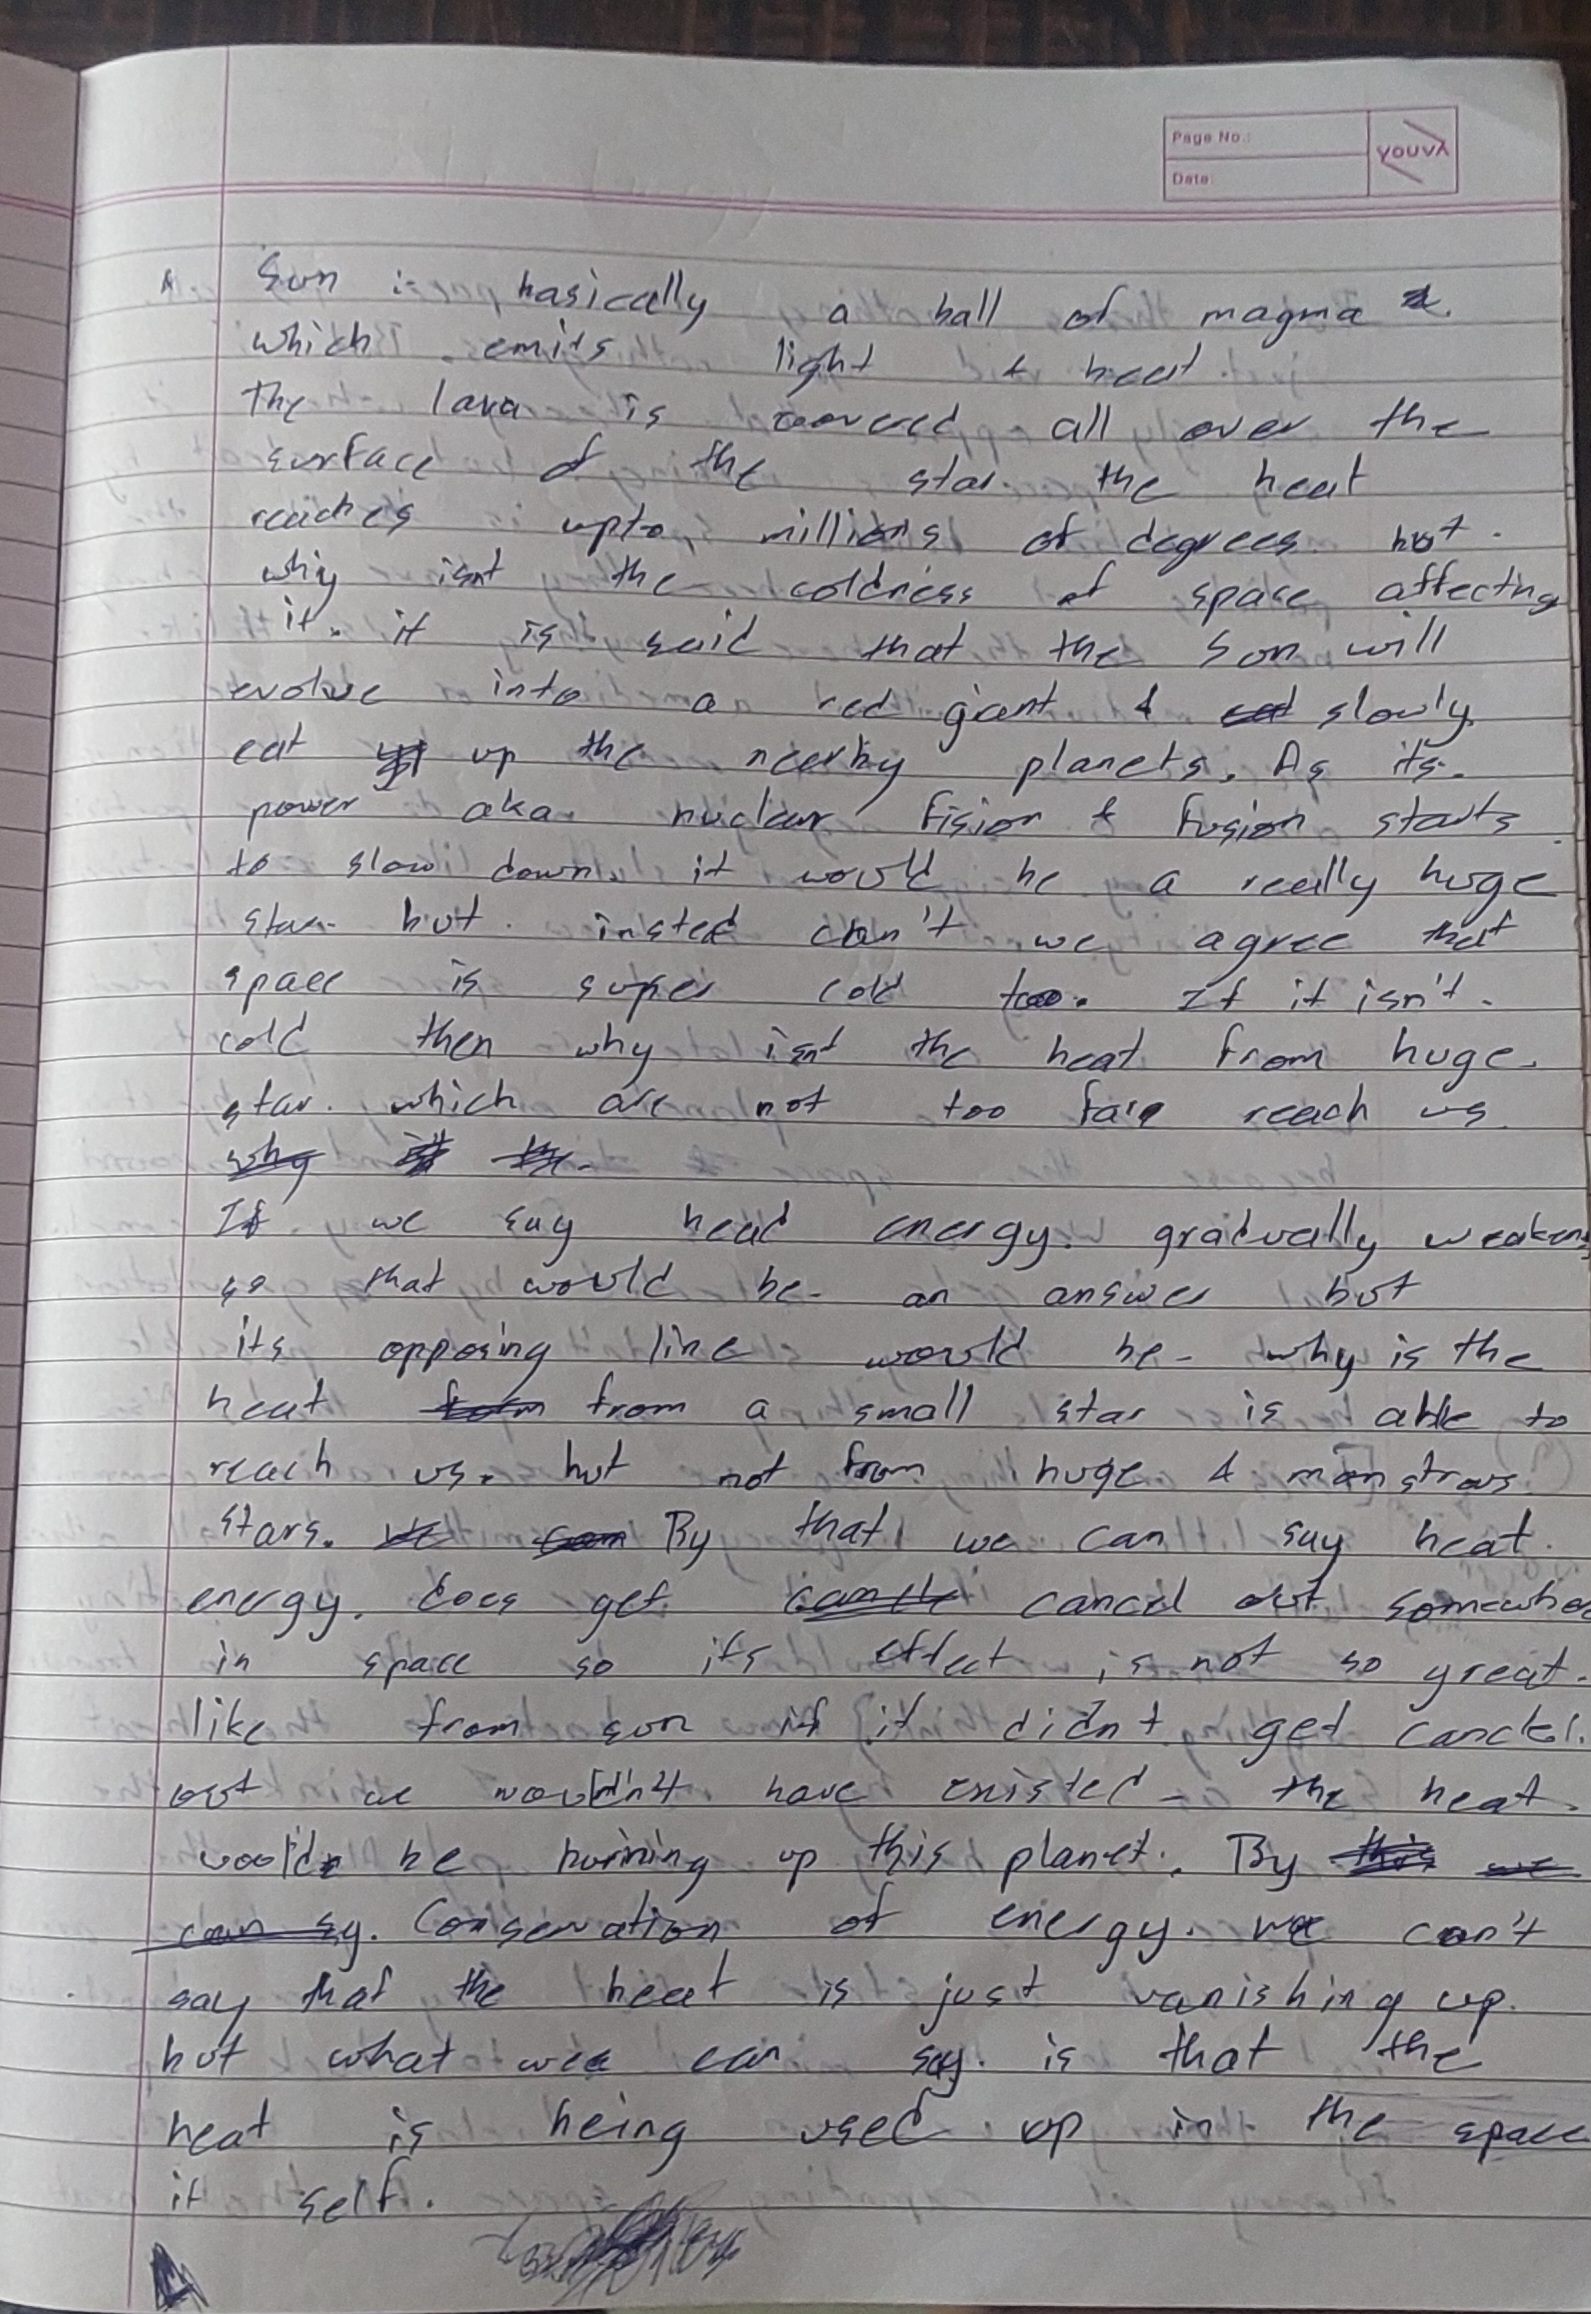 Page No.:
Date:
youva
Sun is basically a ball of magma
which emits light & heat.
The lava is covered all over the
surface of the star. the heat
reaches upto, millions of degrees. but.
why isnt the coldness of space affecting
it. it is said that the Sun will
evolve into a red giant & slowly
eat up the nearby planets. As its.
power aka. nuclear fision & fusion starts
to slow down. it would be a really huge
star. but. insted can't we agree that
space is super cold too. If it isn't.
cold then why isnt the heat from huge.
star. which are not too far reach us
why
If we say head energy. gradually weakens
so that would be an answer but
its opposing line would be why is the
heat from a small star is able to
reach us. but not from huge & monstrous
stars. By that, we can say heat
energy. does get cancel out somewhe
in space so its effect is not so great.
like from sun if it didnt get canclel.
out we wouldn't have existed - the heat.
would be burning up this planet. By this we
can sy. Conservation of energy. we can't
say that the heat is just vanishing up.
but what we can say. is that the
heat is being used up in the space
it self.